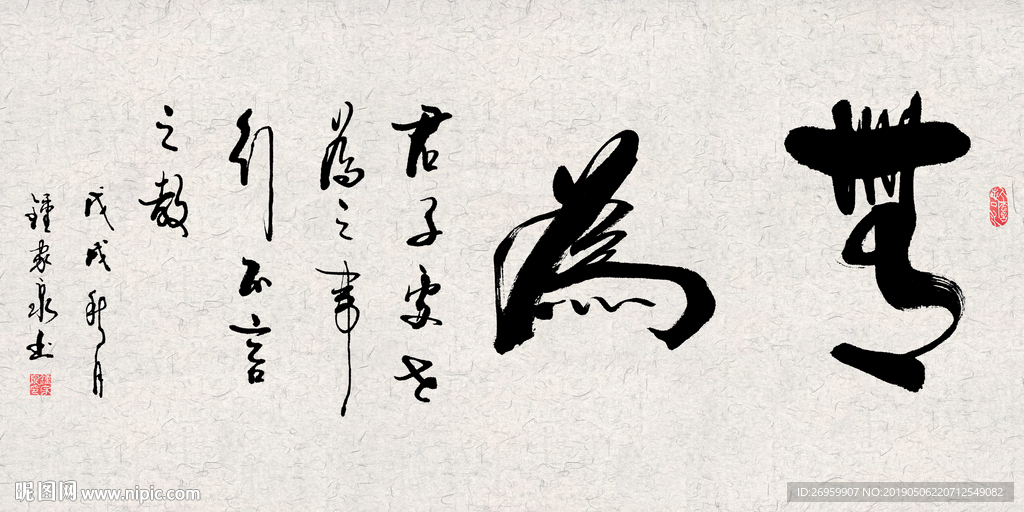 無為
君子處無
為之事
行不言
之教
戊戌秋月
鍾家泉書
昵图网 www.nipic.com
ID:26959907 NO:20190506220712549082